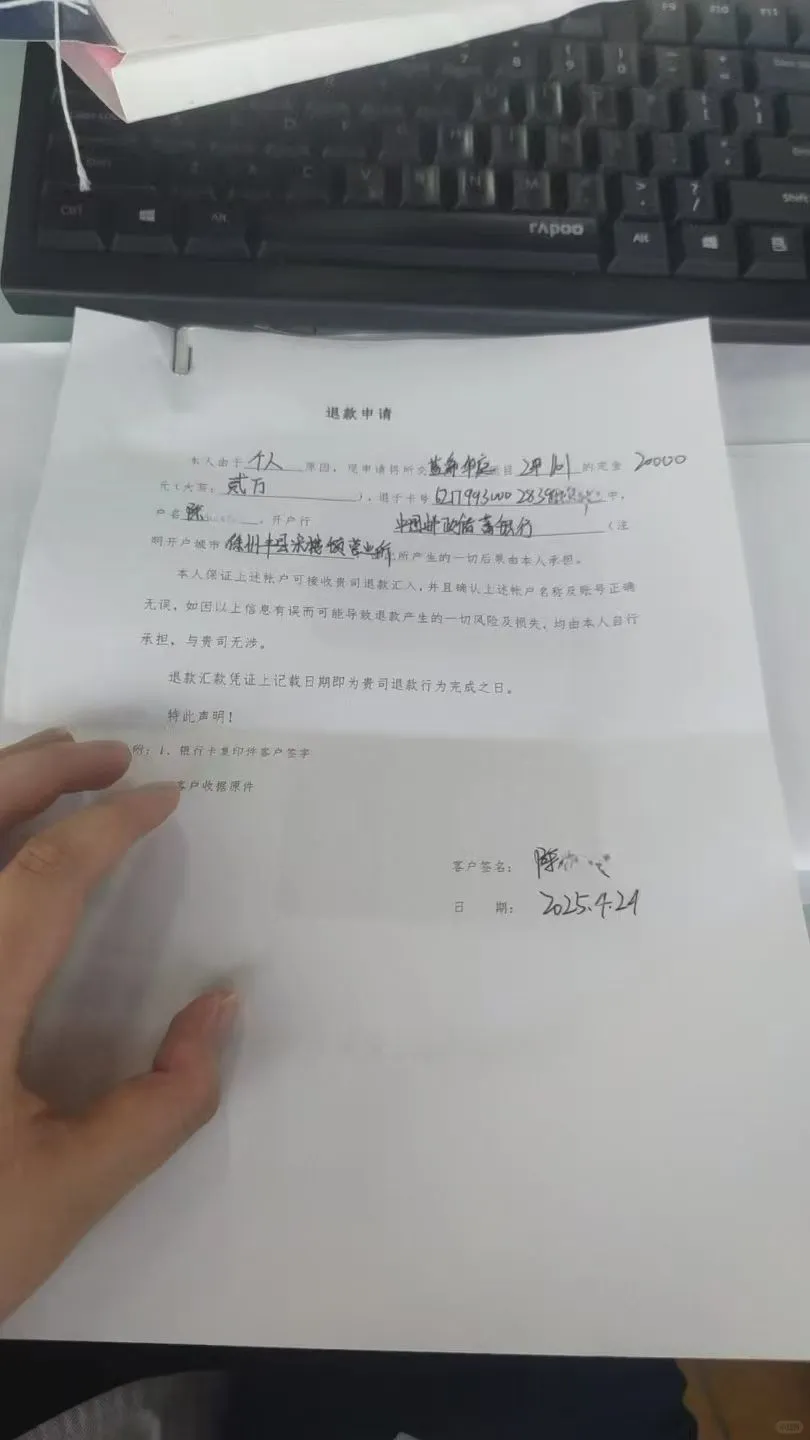 rapoo
退款申请
本人由于个人原因，现申请将所交 华庭项目 101的定金20000
元（大写：贰万），退于卡号 中，
户名 ，开户行中国邮政储蓄银行（注
明开户城市徐州丰县宋楼镇营业所 所产生的一切后果由本人承担。
本人保证上述帐户可接收贵司退款汇入，并且确认上述帐户名称及账号正确
无误，如因以上信息有误而可能导致退款产生的一切风险及损失，均由本人自行
承担，与贵司无涉。
退款汇款凭证上记载日期即为贵司退款行为完成之日。
特此声明！
附：1、银行卡复印件客户签字
客户收据原件
客户签名：陈
日 期：2025.4.24